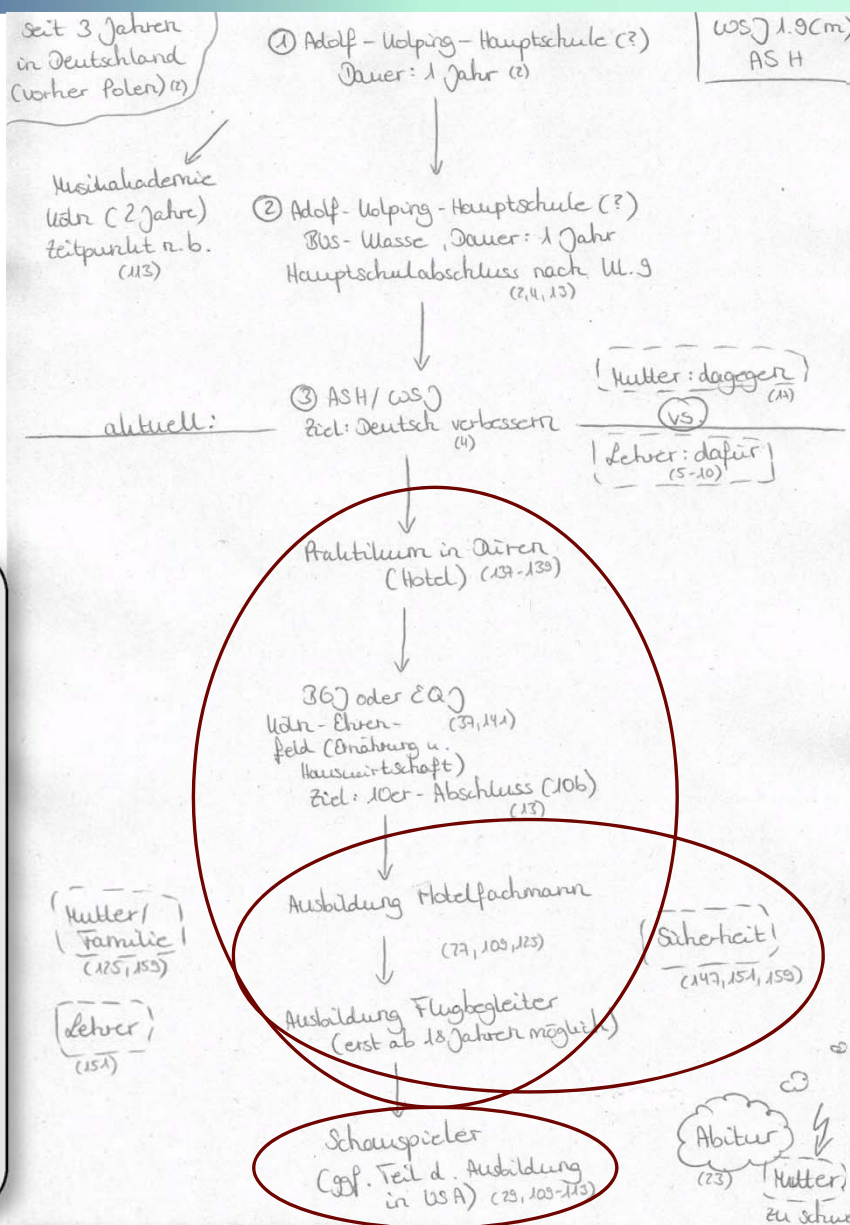 seit 3 Jahren
in Deutschland
(vorher Polen) (2)
① Adolf-Kolping-Hauptschule (?)
Dauer: 1 Jahr (2)
WSJ 1.9 (m)
ASH
Musikakademie
Köln (2 Jahre)
Zeitpunkt n.b.
(113)
② Adolf-Kolping-Hauptschule (?)
BUS-Klasse, Dauer: 1 Jahr
Hauptschulabschluss nach Kl. 9
(2,4,13)
aktuell:
③ ASH/WSJ
Ziel: Deutsch verbessern
(4)
Mutter: dagegen
vs
Lehrer: dafür
(5-10)
Praktikum in Düren
(Hotel) (137-139)
BGJ oder EQJ
Köln-Ehren- (37,141)
feld (Ernährung u.
Hauswirtschaft)
Ziel: 10er-Abschluss (10b)
(13)
Ausbildung Hotelfachmann
(27,109,123)
Ausbildung Flugbegleiter
(erst ab 18 Jahren möglich)
Mutter/
Familie
(125,159)
Lehrer
(151)
Sicherheit
(147,151,159)
Schauspieler
(ggf. Teil d. Ausbildung
in USA) (29,109-113)
Abitur
(23)
Mutter,
zu schw